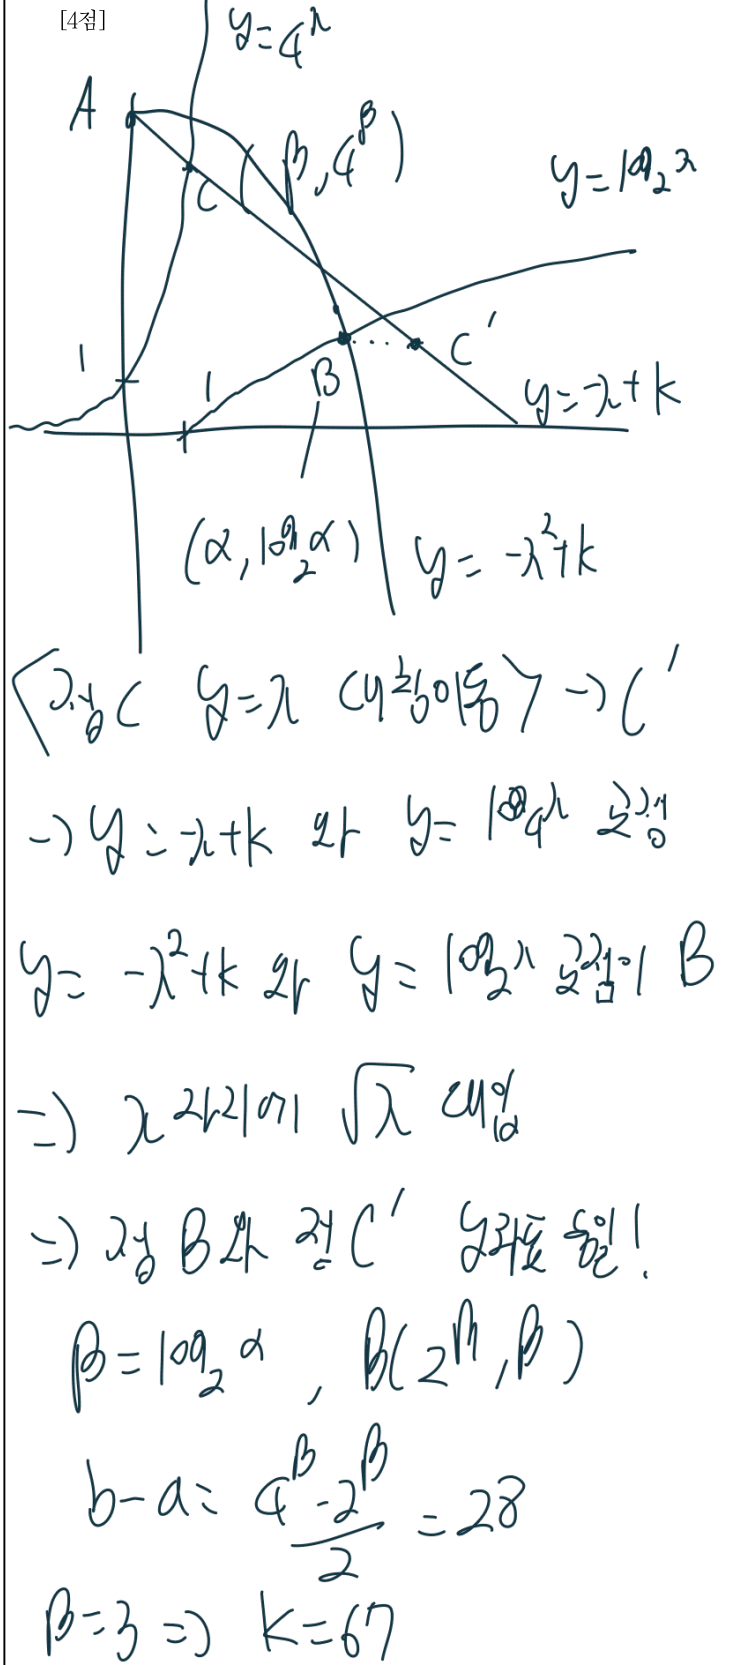 [4점]
y=4^x
A
(β, 4^β)
y=log₂x
C
C'
1
1
B
y=-x+k
(α, log₂α)
y=-x²+k
점 C y=x 대칭이동 → C'
→ y=-x+k 와 y=log₄x 교점
y=-x²+k 와 y=log₂x 교점이 B
⇒ x 자리에 √x 대입
⇒ 점 B와 점 C' y좌표 동일!
β=log₂α, B(2^β, β)
b-a= (4^β-2^β)/2 =28
β=3 ⇒ k=67